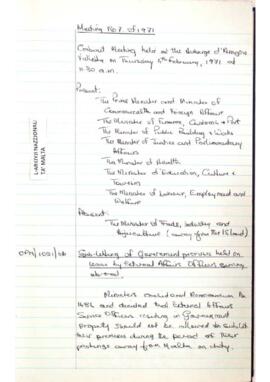 Meeting No 7 of 1971
Cabinet Meeting held at the Auberge d'Aragon
Valletta on Thursday 4th February, 1971 at
11.30 a.m.
Present:
The Prime Minister and Minister of
Commonwealth and Foreign Affairs
The Minister of Finance, Customs & Port
The Minister of Public Building & Works
The Minister of Justice and Parliamentary
Affairs
The Minister of Health
The Minister of Education, Culture &
Tourism
The Minister of Labour, Employment and
Welfare
L-ARKIVJI NAZZJONALI
TA' MALTA
Absent:
The Minister of Trade, Industry and
Agriculture (away from the Island)
Sub-letting of Government premises held on
lease by External Affairs Officers serving
abroad.
Ministers considered Memorandum No
1484 and decided that External Affairs
Service Officers residing in Government
property should not be allowed to sublet
their premises during the period of their
postings away from Malta on duty.